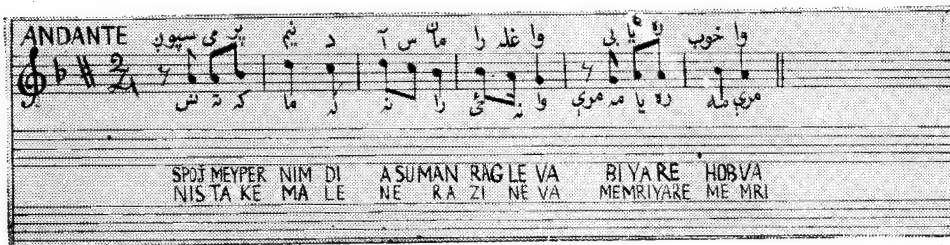 ANDANTE سپوږ می پر نیم د آ س مان را غله وا بی یا ره خوب وا
2/4
نش ته که ما له نه را ځئ نه وا مه مرې یا ره مه مرې
SPOJ MEYPER NIM DI A SUMAN RAG LE VA BI YA RE HOB VA
NIS TA KE MA LE NE RA ZI NE VA MEMRIYARE ME MRI